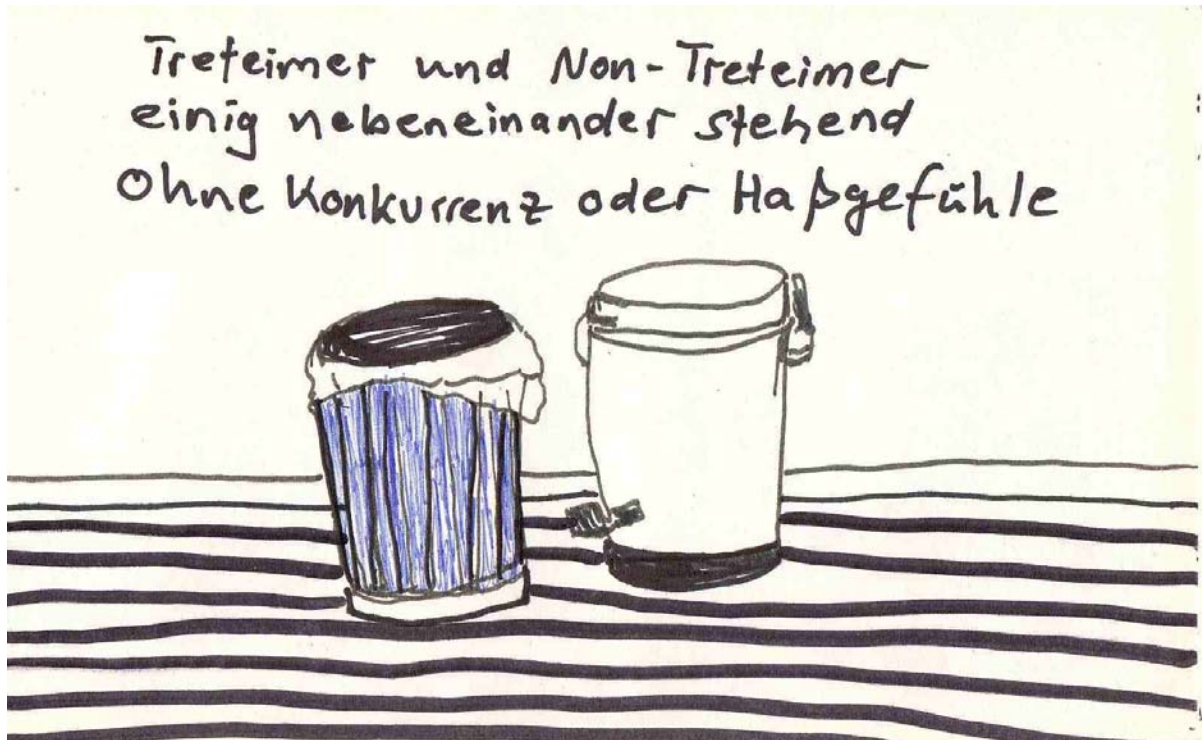 Treteimer und Non-Treteimer
einig nebeneinander stehend
ohne Konkurrenz oder Haßgefühle